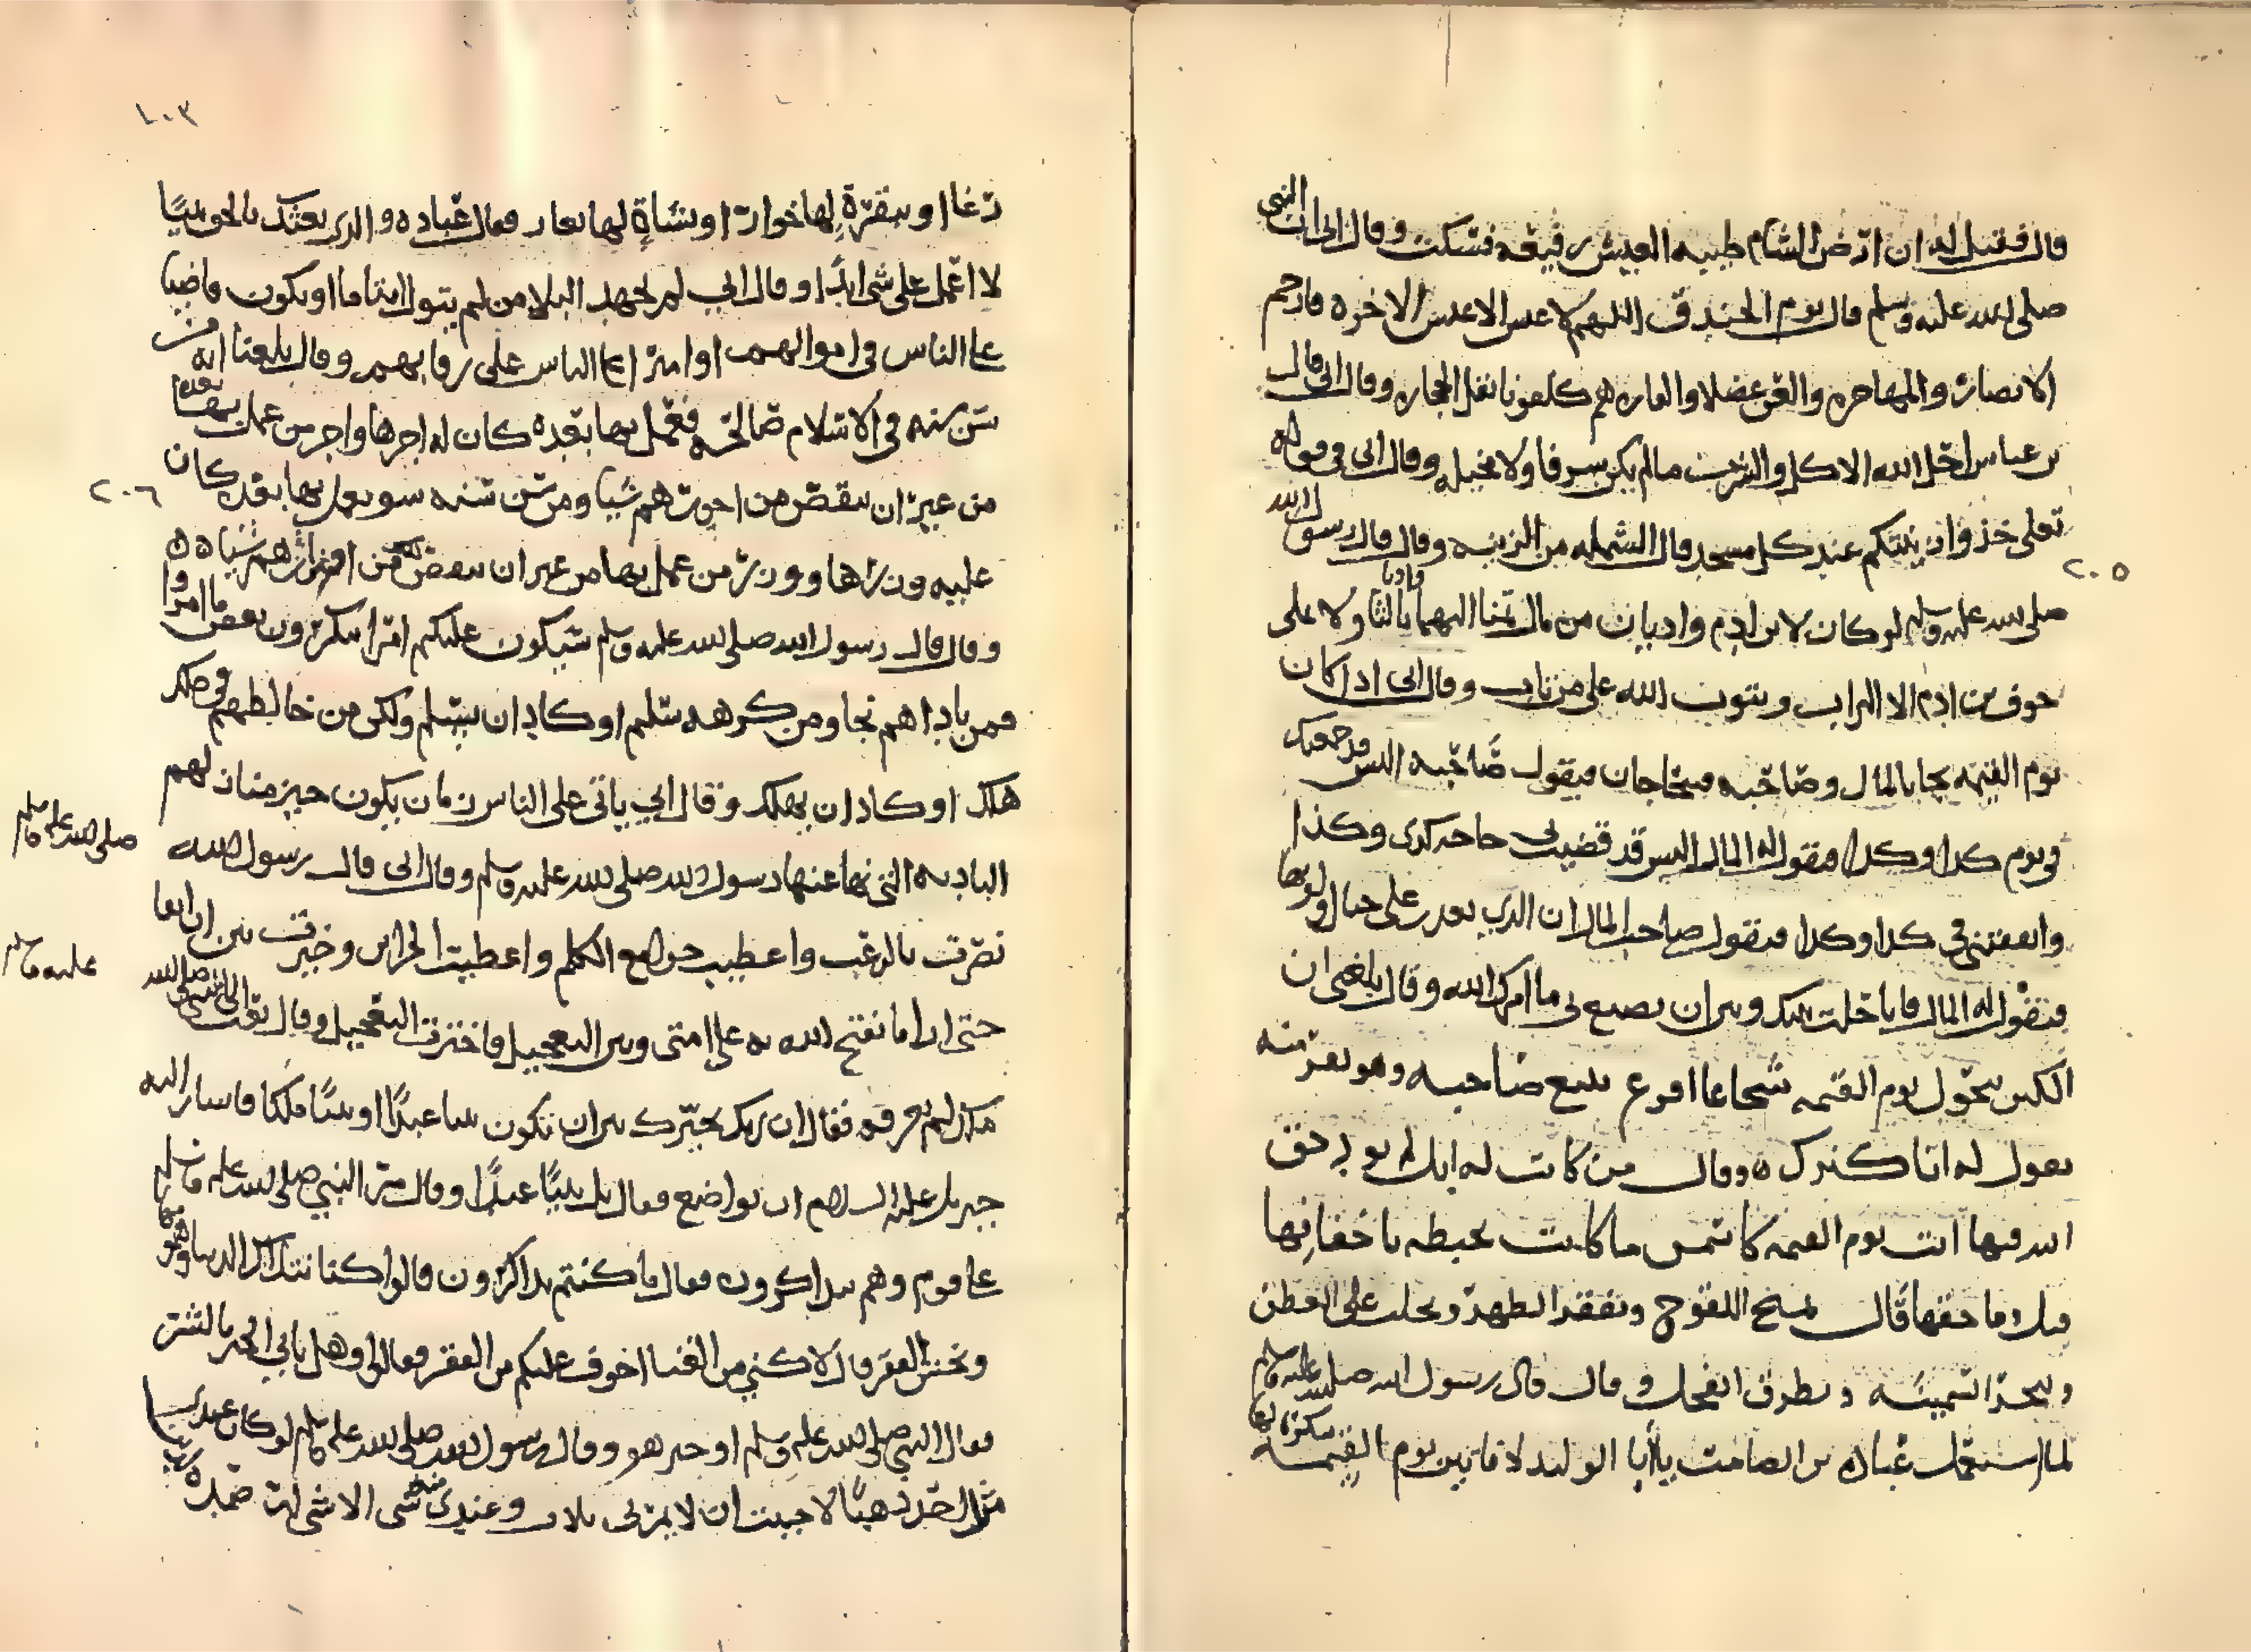 قال فقيل له ان ارض الشام طيبه العيش رفيعه فسكت وقال ابي ان النبي
صلى الله عليه وسلم قال يوم الخندق اللهم لا عيش الا عيش الاخره فارحم
الانصار والمهاجره والعن عضلا والقاره هم كلفونا نقل الحجاره وقال ابي قال
بن عباس احل الله الاكل والشرب ما لم يكن سرفا ولا مخيله وقال ابي في قوله
تعلى خذوا زينتكم عند كل مسجد قال الشمله من الزينه وقال قال رسول الله
٢٠٥
صلى الله عليه وسلم لو كان لابن ادم واديان من مال تمنا اليهما واديا ثالثا ولا يملى
جوف بن ادم الا التراب ويتوب الله على من تاب وقال ابي اذا كان
يوم القيمه يجا بالمال وصاحبه فيتحاجان فيقول صاحبه اليس قد جمعتك
في يوم كدا وكدا فيقول له المال اليس قد قضيت بي حاجه كدى وكذا
وانفقتني في كدا وكدا فيقول صاحب المال ان الذي تعدد على حبال اوثق بها
فيقول له المال فانا حلت بينك وبين ان تصنع بي ما امرك الله وقال بلغني ان
الكنز يتحول يوم القيمه شجاعا اقرع يتبع صاحبه وهو يفر منه
يقول له انا كنزك ٥ وقال من كانت له ابل لم يود حق
الله فيها اتت يوم القيمه كاسمن ما كانت تخبطه باخفافها
قيل وما حقها قال تمنح اللقوح وتفقر الظهر وتحلب على العطن
وتنحر السمينه وتطرق الفحل وقال قال رسول الله صلى الله عليه وسلم
لما استعمل عباده بن الصامت يا ابا الوليد لا تاتين يوم القيمه ببكر له
١٠٣
رغا او ببقرة لها خوار او بشاة لها يعار فقال عباده والذي بعثك بالحق نبيا
لا اعمل على شي ابدا وقال ابي لم يجهد البلا من لم يتول ايتاما او يكون قاضيا
على الناس في اموالهم او اميرا على الناس على رقابهم وقال بلغنا انه من
سن سنه في الاسلام صالحه فعمل بها بعده كان له اجرها واجر من عمل بها بعده
من غير ان ينقص من اجورهم شيا ومن سن سنه سو يعمل بها بعده كان
٢٠٦
عليه وزرها ووزر من عمل بها من غير ان ينقص من اوزارهم شيا ٥٥
وقال قال رسول الله صلى الله عليه وسلم سيكون عليكم امرا ينكرون بعض ما امروا
فمن باداهم نجا ومن كرهه سلم او كاد ان يسلم ولكن من خالطهم في ملك
هلك او كاد ان يهلك وقال ابي ياتي على الناس زمان يكون خير منازلهم
الباديه التي نها عنها رسول الله صلى الله عليه وسلم وقال ابي قال رسول الله
صلى الله عليه وسلم
نصرت بالرعب واعطيت جوامع الكلم واعطيت الخزاين وخيرت بين ان ابقا
حتى ارا ما يفتح الله به على امتي وبين التعجيل فاخترت التعجيل وقال بعث الى النبي صلى الله
عليه وسلم
ملك لم يعرفه فقال ان ربك يخيرك بين ان تكون نبيا عبدا او نبيا ملكا فاشار اليه
جبريل عليه السلام ان تواضع فقال بل نبيا عبدا وقال مر النبي صلى الله عليه وسلم
على قوم وهم يتذاكرون فقال ما كنتم تذاكرون قالوا كنا نتذاكر الدنيا وهمومها
ونخشى الفقر قال لاكني من الغنا اخوف عليكم من الفقر فقالوا وهل ياتي الخير بالشر
فقال النبي صلى الله عليه وسلم اوخير هو وقال رسول الله صلى الله عليه وسلم لو كان عندي
مثل احد ذهبا لاحببت ان لا يمر بي ثلاث وعندي منه شي الا شي ارصده لدين